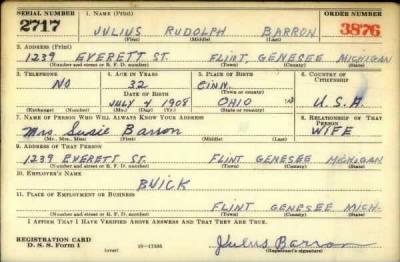 SERIAL NUMBER 1. NAME (Print) ORDER NUMBER
2717 JULIUS RUDOLPH BARRON 3876
(First) (Middle) (Last)
2. ADDRESS (Print)
1239 EVERETT ST. FLINT, GENESEE MICHIGAN
(Number and street or R. F. D. number) (Town) (County) (State)
3. TELEPHONE 4. AGE IN YEARS 5. PLACE OF BIRTH 6. COUNTRY OF CITIZENSHIP
NO 32 CINN.
(Town or county)
DATE OF BIRTH
JULY 4 1908 OHIO U.S.A.
(Exchange) (Number) (Mo.) (Day) (Yr.) (State or country)
7. NAME OF PERSON WHO WILL ALWAYS KNOW YOUR ADDRESS 8. RELATIONSHIP OF THAT PERSON
Mrs. Susie Barron WIFE
(Mr., Mrs., Miss) (First) (Middle) (Last)
9. ADDRESS OF THAT PERSON
1239 EVERETT ST. FLINT GENESEE MICHIGAN
(Number and street or R. F. D. number) (Town) (County) (State)
10. EMPLOYER'S NAME
BUICK
11. PLACE OF EMPLOYMENT OR BUSINESS
FLINT GENESEE MICH-
(Number and street or R. F. D. number) (Town) (County) (State)
I AFFIRM THAT I HAVE VERIFIED ABOVE ANSWERS AND THAT THEY ARE TRUE.
REGISTRATION CARD
D. S. S. Form 1 (over) 16-17105 Julius Barron
(Registrant's signature)